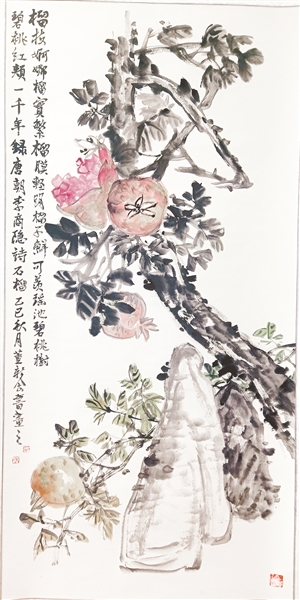 榴枝婀娜榴實繁榴膜輕明榴子鮮可羡瑤池碧桃樹
碧桃紅頰一千年録唐朝李商隱詩石榴乙巳秋月董新会書畫之